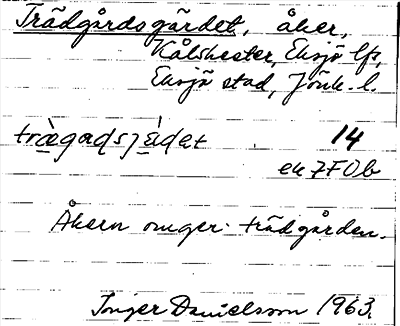 Trädgårdsgärdet, åker,
Kålshester, Eksjö lfs,
Eksjö stad, Jönk. l.
trägadsjädet 14
ek 7F0b
Åkern omger trädgården.
Inger Danielsson 1963.